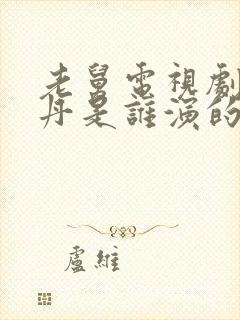 老舅電視劇
丹是誰演的
盧維